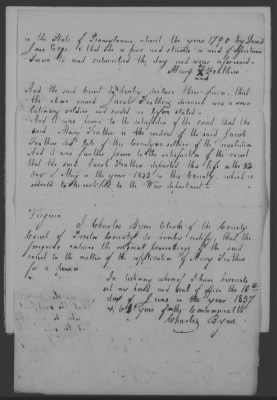 in the State of Pennsylvania about the year 1790 by David
Jones Esqr. & that she is poor and
Sworn to and subscribed the day and year aforesaid
Mary X Feather
mark
And the said Court do hereby declare their opinion that
the above named Jacob Feather deceased was a revo
lutionary soldier and served as before stated.
And it was proven to the satisfaction of the court that the
said Mary Feather is the widow of the said Jacob
Feather dec'd late of this County a soldier of the revolution
And it was further proven to the satisfaction of the court
that the said Jacob Feather departed this life on the
day of May in the year 1832 in this County, which is
ordered to be certified to the War department.
Virginia
I Charles Byrn Clerk of the County
Court of Preston County do hereby certify, that the
foregoing contains the original proceedings of the said
court in the matter of the application of Mary Feather
for a pension
In testimony whereof I have hereunto
set my hand and seal of office the 10th
day of June in the year 1837
& year of the Commonwealth
Charles Byrn